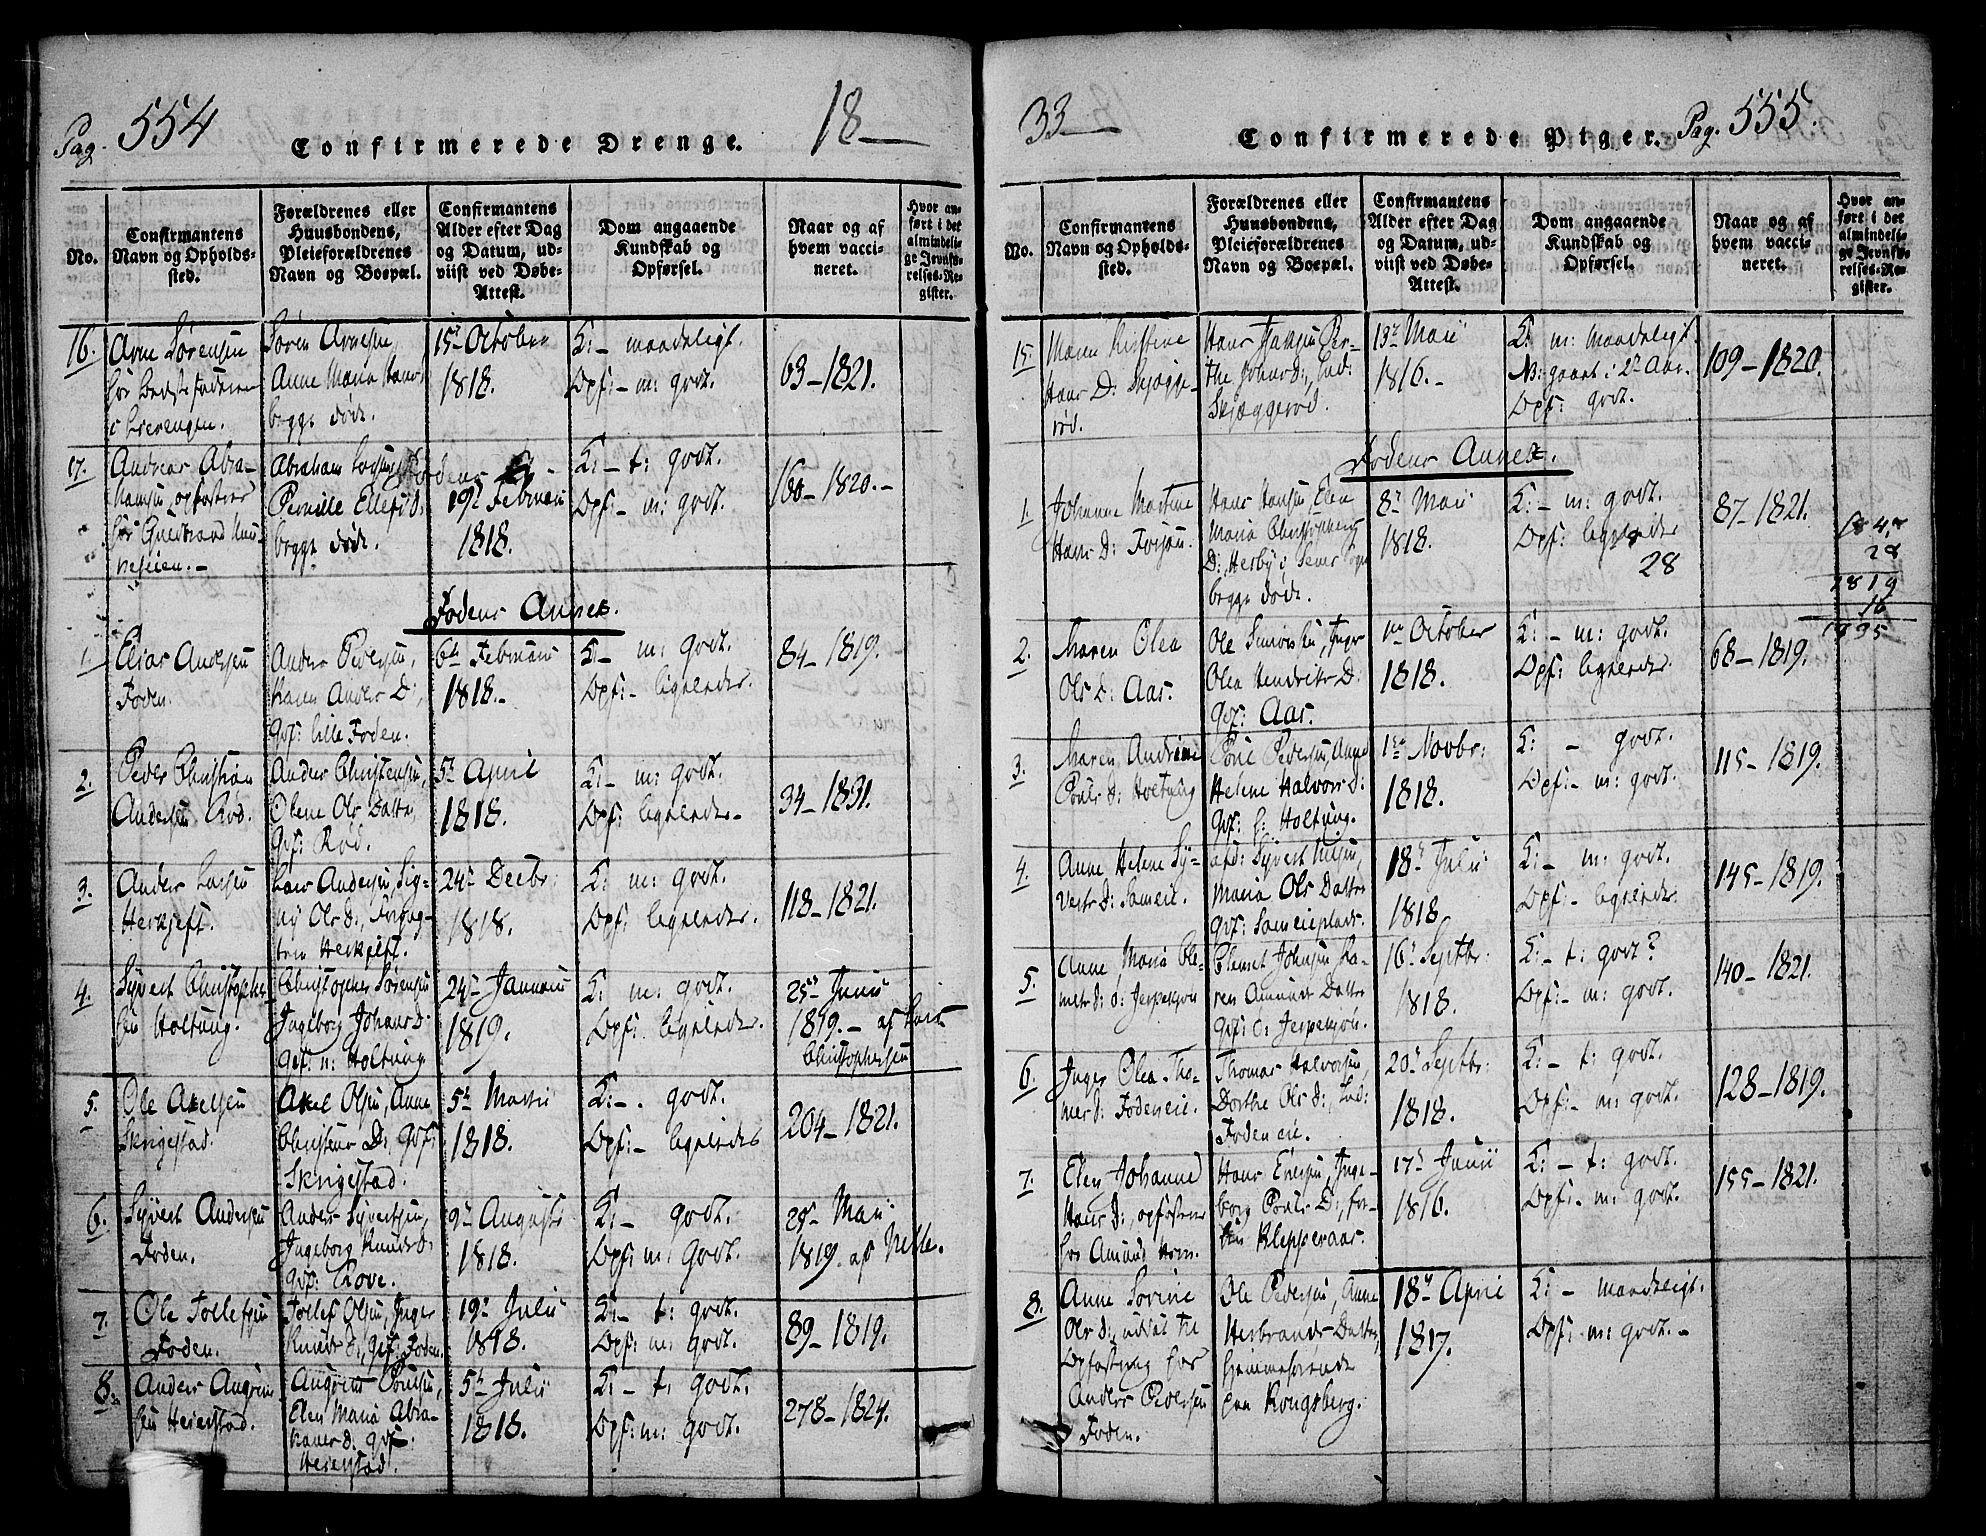 Pag. 554
Confirmerede Drenge.
18—
No.
Confirmantens Navn og Opholds-sted.
Forældrenes eller Huusbondens, Pleieforældrenes Navn og Boepæl.
Confirmantens Alder efter Dag og Datum, ud-viist ved Døbe-Attest.
Dom angaaende Kundskab og Opførsel.
Naar og af hvem vacci-neret.
Hvor an-ført i det almindeli-ge Jevnfø-relses-Re-gister.
16. Arne Sørensen
Søren Arnesen, Anne Maria
begge døde.
15de October 1818.
K: - maadeligt.
Opf: - m: godt.
63 - 1821.
17. Andreas Abra-hamsen, opfostret hos Guldbrand
Abraham
Pernille
begge døde.
19de Februari 1818.
K: - t: godt.
Opf: - m: godt.
160 - 1820. -
Fodens Annex.
1. Elias Andersen Foden.
Anders Pedersen, Karen Anders D:, Gsf: lille Foden.
6te Februari 1818. -
K: - m: godt.
Opf: - ligeledes.
84 - 1819.
2. Peder Christian Andersen Rød.
Anders Christensen, Olene Ols Datter, Gsf: Rød.
5te April 1818.
K: - m: godt.
Opf: ligeledes -
34 - 1831.
3. Anders Larsen
Lars Andersen, Sig-ny Ols D:,
24de Decbr: 1818.
K: m: godt.
Opf: ligeledes.
118 - 1821.
4. Syvert Christopher-sen Holtung.
Christopher Sørensen Ingeborg Johans D: Gsf: n: Holtung
24de Januari 1819.
K: m: godt.
Opf: ligeledes.
25de Junii 1819. - af Lars Christophersen
5. Ole Axelsen Skrigestad.
Axel Olsen, Anne Christens D: Gsf: Skrigestad.
5te Martii 1818.
K: - . godt.
Opf: - ligeledes
204 - 1821.
6. Syvert Andersen Foden.
Anders Syvertsen, Ingeborg Knuds D: Gsf: Rove.
9de Augusti 1818.
K: - godt.
Opf: m: godt.
25 - Maii 1819. af
7. Ole Tollefsen Foden.
Tollef Olsen, Inger Knuds D:, Gsf: Foden.
19de Julii 1818.
K: - t: godt.
Opf: m: godt.
89 - 1819.
8. Anders
Heierstad.
Elen Maria Abra-hams D: Gsf: Heierstad.
5te Julii 1818.
K: - t: godt.
Opf: m: godt.
278 - 1824.
33—
Confirmerede Piger.
Pag. 555.
No.
Confirmantens Navn og Opholds-sted.
Forældrenes eller Huusbondens, Pleieforældrenes Navn og Boepæl.
Confirmantens Alder efter Dag og Datum, ud-viist ved Døbe-Attest.
Dom angaaende Kundskab og Opførsel.
Naar og af hvem vacci-neret.
Hvor an-ført i det almindeli-ge Jevnfø-relses-Re-gister.
15.
Hans D: Skjægge-rød.
Hans Jansen
Skjæggerød.
13de Maii 1816. -
K: m: maadeligt.
NB: gaaet i 2de Aar.
Opf: godt.
109 - 1820.
Fodens Annex.
1. Johanne Martine Hans D:
Hans Hansen, Elen Maria
begge døde.
8de Maii 1818.
K: - m: godt.
Opf: ligeledes
28
87 - 1821.
28
1819
16
2. Maren Olea Ols D: Aas.
Ole Simonsen, Inger Olea Hendriks D: Gsf: Aas.
1ste October 1818.
K: - m: godt.
Opf: ligeledes.
68 - 1819.
3. Maren Andrine Pouls D: Holtung
Poul Pedersen, Anne Helene Halvors D: Gsf: Holtung.
1ste Novbr: 1818.
K: - godt.
Opf: - m: godt.
115 - 1819.
4. Anne Helene Sy-verts D: Sameie.
afd: Syvert Nilsen, Maria Ols Datter Gsf: Sameieplads.
18de Julii 1818.
K: - m: godt.
Opf: - ligeledes.
145 - 1819.
5. Anne Maria Cle-mets D: ø: Jerpekjøn
Clemet Johnsen Ka-ren Amunds Datter Gsf: ø: Jerpekjøn.
16de Septbr: 1818.
K: - t: godt?
Opf: - m: godt.
140 - 1821.
6. Inger Olea Tho-mas D: Fodeneie.
Thomas Halvorsen, Dorthe Ols D:, Ind: Fodeneie.
20de Septbr: 1818.
K: - t: godt.
Opf: - m: godt.
128 - 1819.
7. Elen Johanne Hans D:, opfostret hos Amund
Hans Ersen, Inge-borg Pouls D:,
Klepperaas.
17de Junii 1816.
K: - t: godt.
Opf: - m: godt.
155 - 1821.
8. Anne Sørine Ols D:, udsat til Opfostring hos Anders Pedersen Foden.
Ole Pedersen, Anne Herbrands Datter, hjemmehørende paa Kongsberg.
18de April 1817.
K: - maadeligt.
Opf: - m: godt. -